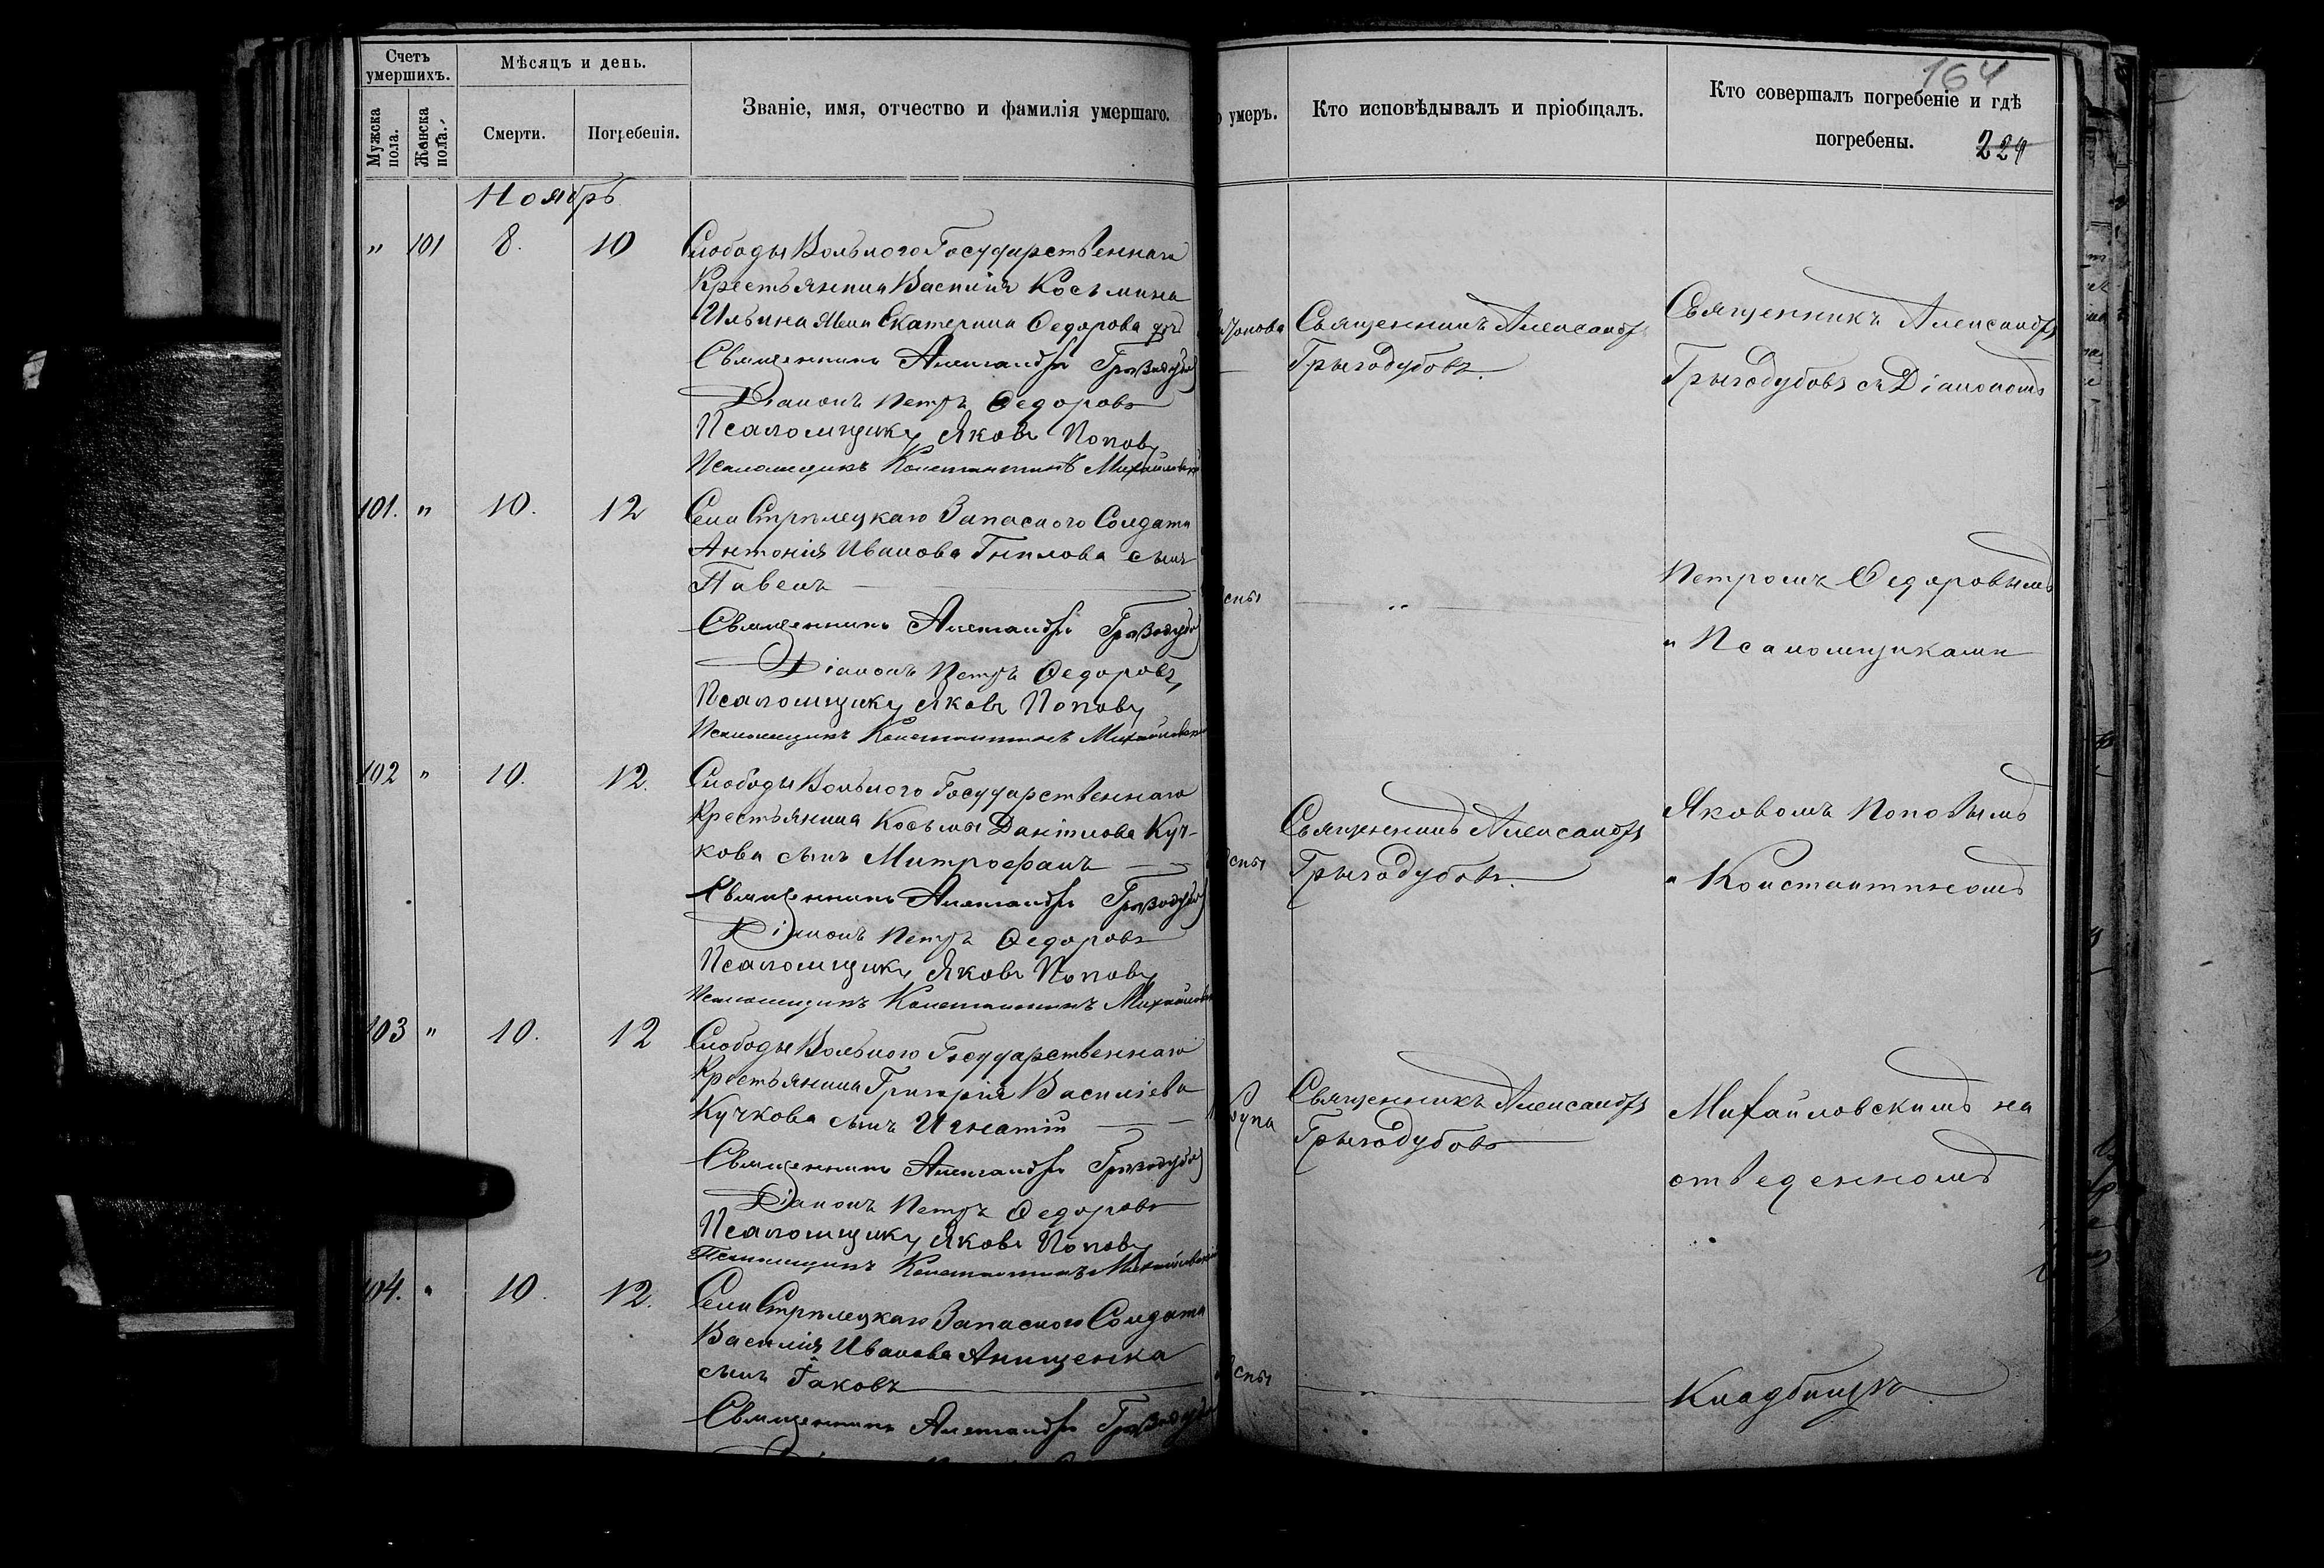 Счетъ умершихъ.
Мѣсяцъ и день.
Мужска пола.
Женска пола.
Смерти.
Погребенія.
Званіе, имя, отчество и фамилія умершаго.
Ноябрь
" 101 8. 10
Слободы Вольного Государственнаго
Крестьянина Василія Косьмина
Ильина жена Екатерина Ѳедорова
Священникъ Александръ
Діаконъ Петръ Ѳедоровъ
Псаломщикъ Яковъ Поповъ
Псаломщикъ Константинъ Михайловскій
101. " 10. 12
Села Стрѣлецкаго Запасного Солдата
Антонія Иванова Гнилова сынъ
Павелъ
Священникъ Александръ
Діаконъ Петръ Ѳедоровъ
Псаломщикъ Яковъ Поповъ
Псаломщикъ Константинъ Михайловскій
102 " 10. 12.
Слободы Вольного Государственнаго
Крестьянина Косьмы Даніилова Куч-
кова сынъ Митрофанъ
Священникъ Александръ
Діаконъ Петръ Ѳедоровъ
Псаломщикъ Яковъ Поповъ
Псаломщикъ Константинъ Михайловскій
103 " 10. 12
Слободы Вольного Государственнаго
Крестьянина Григорія Василіева
Кучкова сынъ Игнатій
Священникъ Александръ
Діаконъ Петръ Ѳедоровъ
Псаломщикъ Яковъ Поповъ
Псаломщикъ Константинъ Михайловскій
104. " 10. 12.
Села Стрѣлецкаго Запасного Солдата
Василія Иванова Анищенка
сынъ Іаковъ
Священникъ Александръ
умеръ.
Кто исповѣдывалъ и пріобщалъ.
164
Кто совершалъ погребеніе и гдѣ
погребены.
224
Священникъ Александръ
Грызодубовъ.
"
Священникъ Александръ
Грызодубовъ.
Священникъ Александръ
Грызодубовъ
"
Священникъ Александръ
Грызодубовъ съ Діакономъ
Петромъ Ѳедоровымъ
и Псаломщиками
Яковомъ Поповымъ
и Константиномъ
Михайловскимъ на
отведенномъ
Кладбищѣ